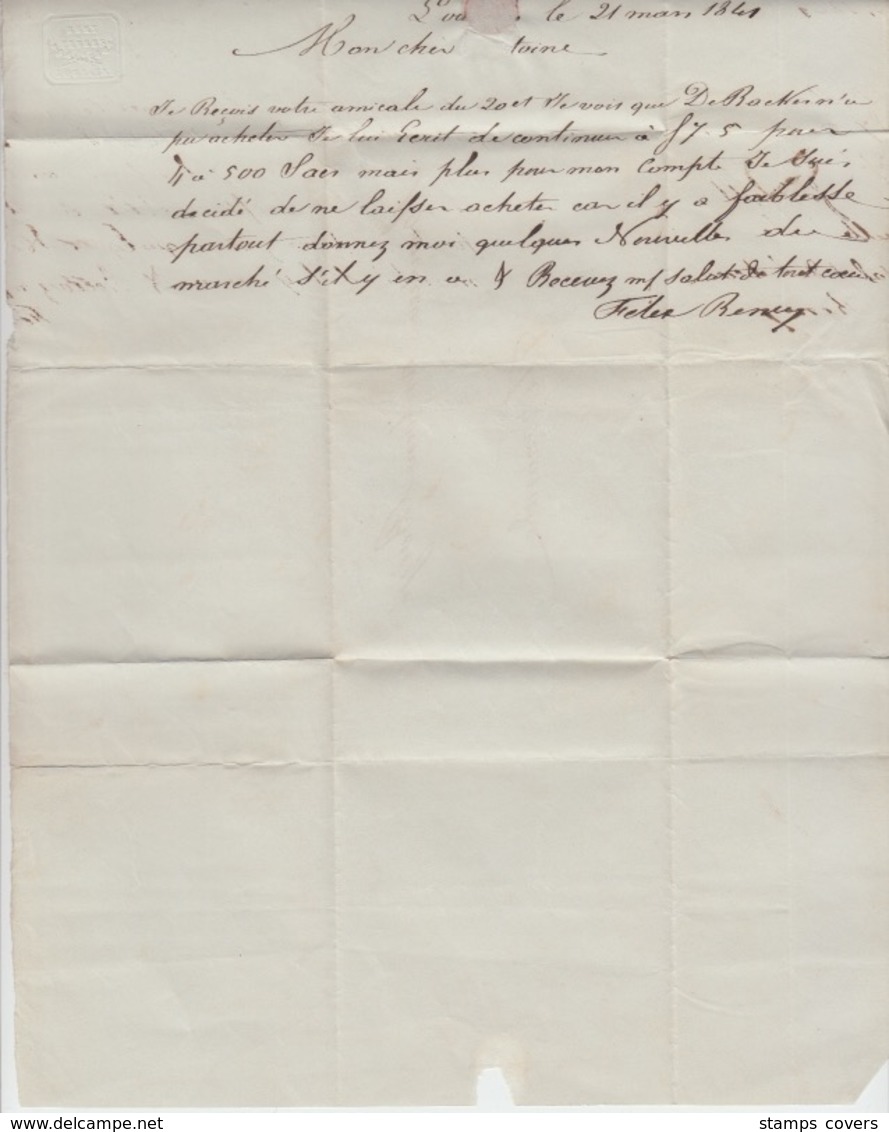 le 21 mars 1841
Mon cher toine
Je Reçois votre amicale du 20 et Je vois que De Backer n'a
pu acheter Je lui Ecrit de continuer à f 7.5 pour
4 à 500 Sacs mais plus pour mon compte Je suis
decidé de ne laisser acheter car il y a faiblesse
partout donnez moi quelques Nouvelles du
marché s'il y en a & Recevez m/ salut de tout coeur
Remy
stamps covers